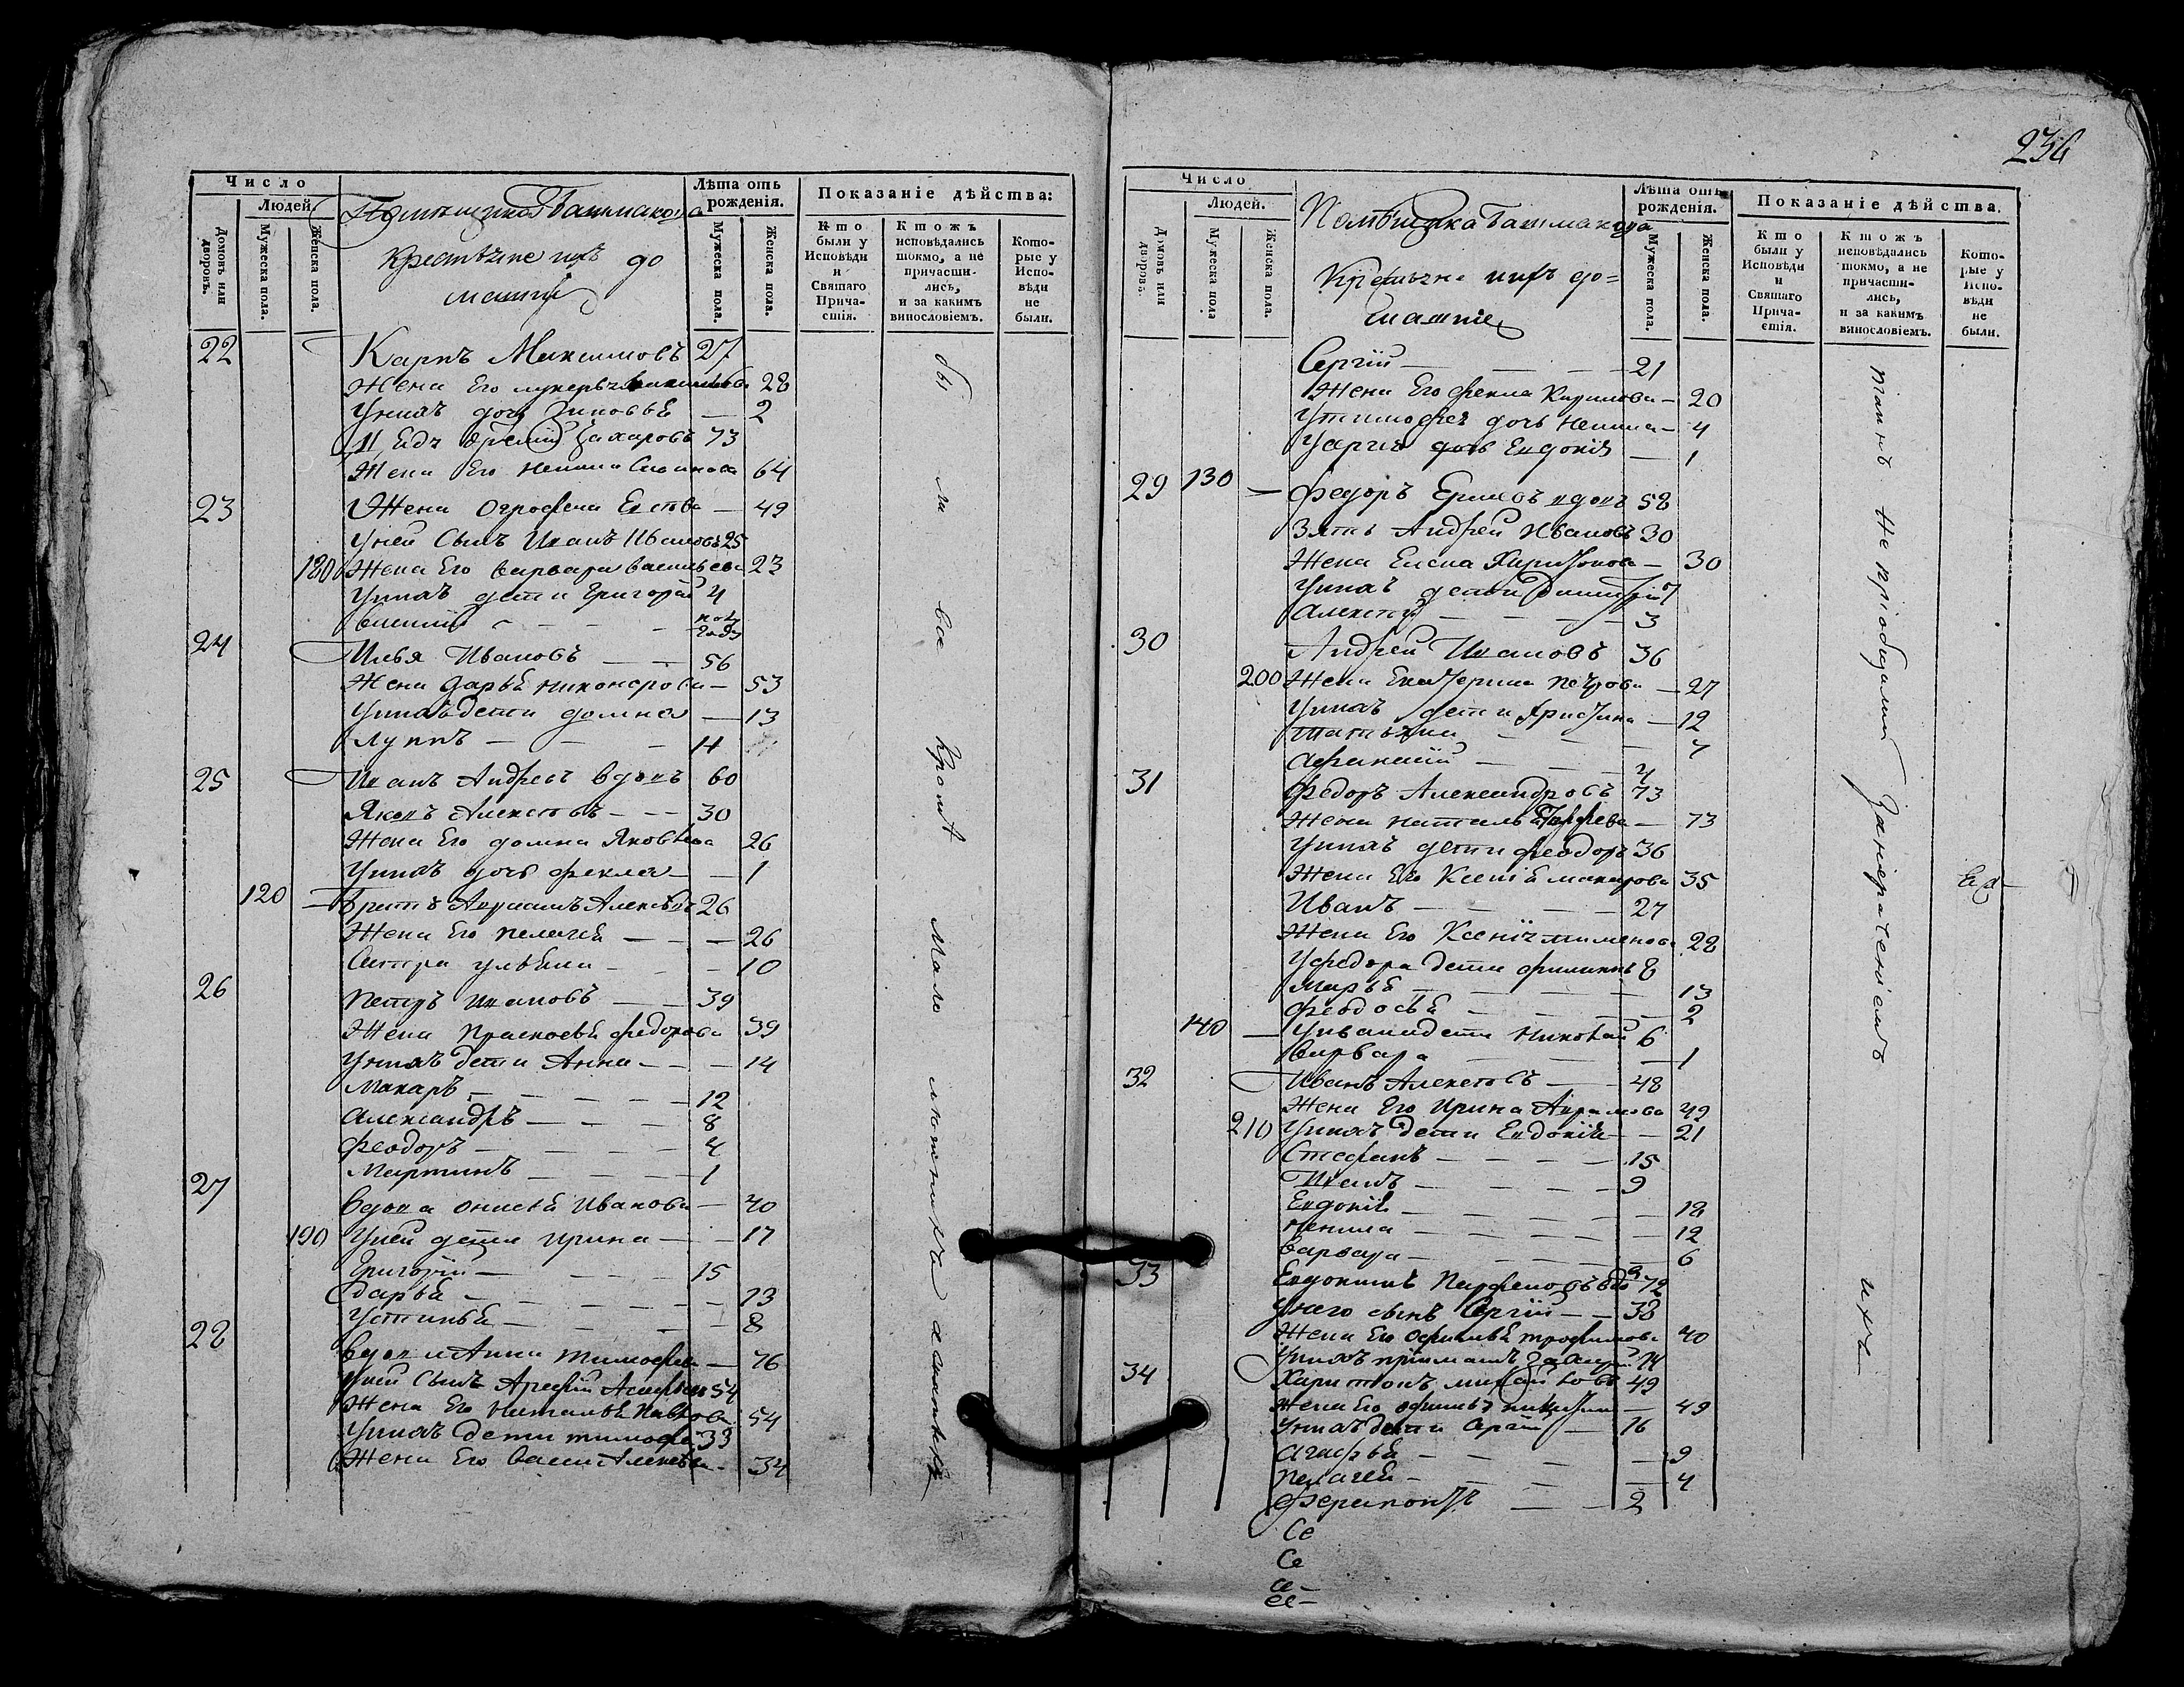 Число
Людей.
Домовъ или дворовъ.
Мужеска пола.
Женска пола.
Помещика Башмакова
Крестьяне ихъ до
машни
Лѣта отъ рожденія.
Мужеска пола.
Женска пола.
Показаніе дѣйства:
Кто были у Исповѣди и Святаго Причастія.
Ктожъ исповѣдались токмо, а не причастились, и за какимъ винословіемъ.
Которые у Исповѣди не были.
22 Карпъ Максимовъ 27
Жена Его 28
Унихъ дочь Зиновья — 2
Захаровъ 73
Жена Его Ненила 64
23 Жена Огрофена — 49
Уней Сынъ Иванъ Ивановъ 25
180 Жена Его варвара васильева 23
Унихъ дети Григорій 4
василій — пол года
24 Илья Ивановъ — 56
Жена дарья никонорова — 53
Унихъ дети домна — 13
Луппъ — 11
25 Иванъ Андреевъ вдовъ 60
Яковъ Алексеевъ — 30
Жена Его домна Яковлева 26
Унихъ дочь фекла — 1
120 братъ Авраамъ Алексеевъ 26
Жена Его пелагея — 26
Сестра ульяна — 10
26 Петръ ивановъ — 39
Жена Прасковья федорова 39
Унихъ дети Анна — 14
Макаръ — 12
Александръ — 8
Феодоръ — 4
Мартинъ — 1
27 вдова онисья Иванова — 40
190 Уней дети ирина — 17
Григорій — 15
дарья — 13
Устинья — 8
28 вдова Анна тимофеева — 76
Уней Сынъ Арефій 54
Жена Его наталья павлова 54
Унихъ дети тимофей 33
Жена Его васса Алексеева 34
бы ли все Кромѣ мало летнихъ
236
Число
Людей.
Домовъ или дворовъ.
Мужеска пола
Женска пола.
Помѣщика Башмакова
Крестьяне ихъ до=
машніе
Лѣта отъ рожденія.
Мужеска пола.
Женска пола.
Показаніе дѣйства.
Кто были у Исповѣди и Святаго Причастія.
Ктожъ исповѣдались токмо, а не причастились, и за какимъ винословіемъ.
Которые у Исповѣди не были.
Сергій — 21
Жена Его фекла Кирилова — 20
Утимофея дочь Ненила — 4
Усергія дочь Евдокія — 1
29 130 — Федоръ Ермиловъ вдовъ 58
Зять Андрей Ивановъ 30
Жена Елена Харитонова — 30
Унихъ дети Димитрій 7
Алексей — 3
30 Андрей Ивановъ 36
200 Жена Екатерина петрова — 27
Унихъ дети Христина — 12
татьяна — 7
Афанасій — 4
31 Федоръ Александровъ 73
Жена наталья — 73
Унихъ дети феодоръ 36
Жена Его Ксенія макарова 35
Иванъ — 27
Жена Его Ксенія 28
Уфедора дети филиппъ 8
Марья — 13
Феодосья — 2
140 — Уивана дети Николай 6
Варвара — 1
32 Иванъ Алексеевъ — 48
Жена Его Ирина Аврамова 49
210 Унихъ дети Евдокія — 21
Стефанъ — 15
Иванъ — 9
Евдокія — 18
Ненила — 12
варвара — 6
33 Евдокимъ Парфеновъ вдо 72
Унего сынъ Сергій — 38
Жена Его офимья трофимова 40
Унихъ приемышъ
34 Харитонъ михайловъ 49
Жена Его офимья — 49
Унихъ дети Сергій — 16
Агафья — 9
Пелагея — 4
Ферапонтъ — 2
Се
Се
се —
ее —
таинъ не пріобщались Занерачениемъ ихъ